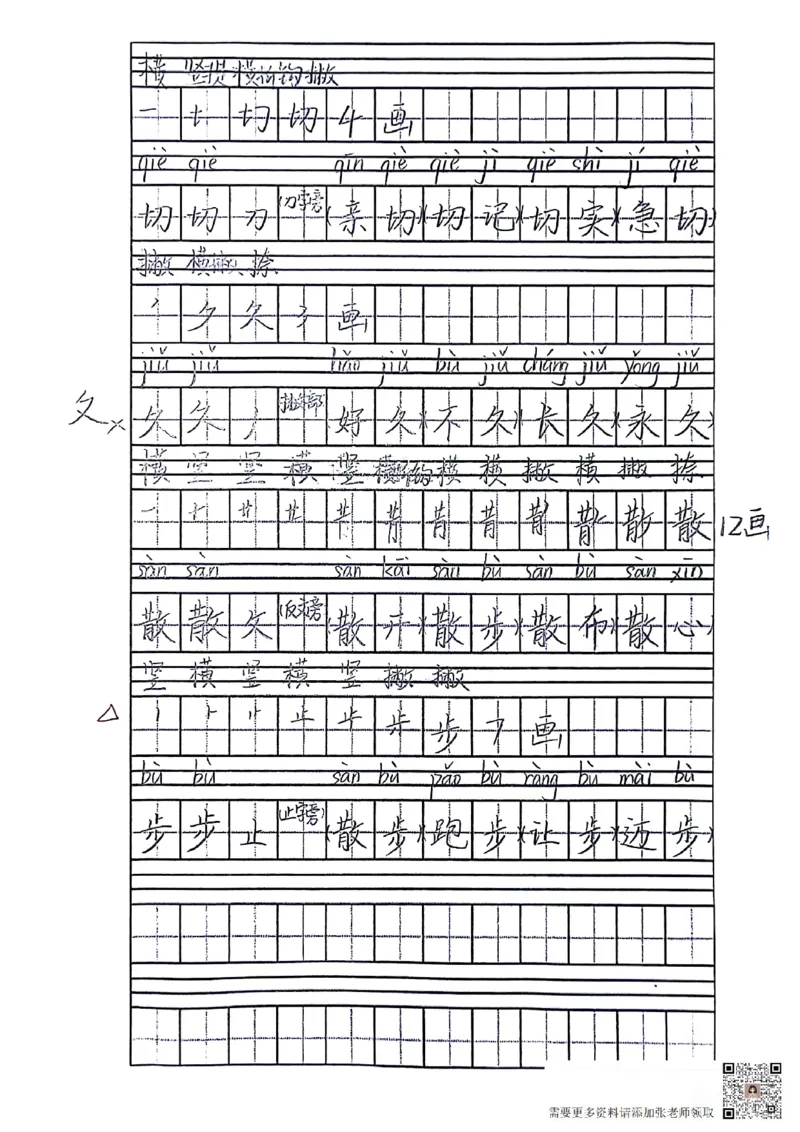 横 竖提 横折钩 撇
一 切 切 4 画
qiè qiè qīn qiè qiè jì qiè shí jí qiè
切 切 刀 (刀字旁) (亲切)(切记)(切实)(急切)
撇 横撇 捺
丿 ク 久 3 画
jiǔ jiǔ hǎo jiǔ bù jiǔ cháng jiǔ yǒng jiǔ
夂× 久 久 丿 撇部 好久(不久)(长久)(永久)
横 竖 竖 横 竖 横折钩 横 横 撇 横 撇 捺
一 十 艹 散 12画
sàn sàn sàn kāi sàn bù sàn bù sàn xīn
散 散 攵 (反文旁) (散开)(散步)(散布)(散心)
竖 横 竖 横 竖 撇 撇
△ 丨 ⺊ 止 步 7 画
bù bù sàn bù pǎo bù ràng bù mài bù
步 步 止 (止字旁) (散步)(跑步)(让步)(迈步)
需要更多资料请添加张老师领取